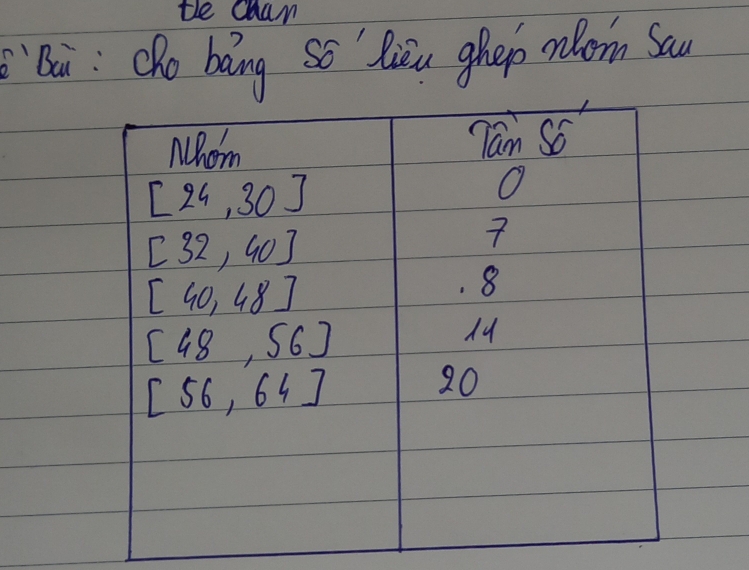 Đề chẵn
Bài : Cho bảng số liệu ghép nhóm sau
Nhóm Tần số
[ 24 , 30 ] 0
[ 32 , 40 ] 7
[ 40, 48 ] . 8
[ 48 , 56 ] 14
[ 56 , 64 ] 20